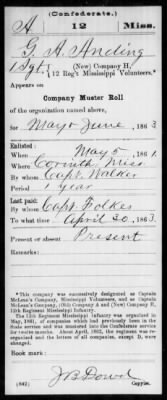 (Confederate.)
A 12 Miss.
G. A. Anding
1 Sgt, (New) Company H,
12 Reg't Mississippi Volunteers.*
Appears on
Company Muster Roll
of the organization named above,
for May & June, 1863
Enlisted:
When May 5, 1861
Where Corinth Miss
By whom Capt. Walker
Period 1 Year
Last paid:
By whom Capt. Folkes
To what time April 30, 1863
Present or absent Present
Remarks:
*This company was successively designated as Captain
McLean's Company, Mississippi Volunteers, and as Captain
McLean's Company, (Old) Company A and (New) Company H,
12th Regiment Mississippi Infantry.
The 12th Regiment Mississippi Infantry was organized in
May, 1861, of companies which had previously been in the
State service and was mustered into the Confederate service
for one year. About April, 1862, the regiment was re-
organized and the letters of all companies, except D, were
changed.
Book mark:
J B Dowd
(642) Copyist.